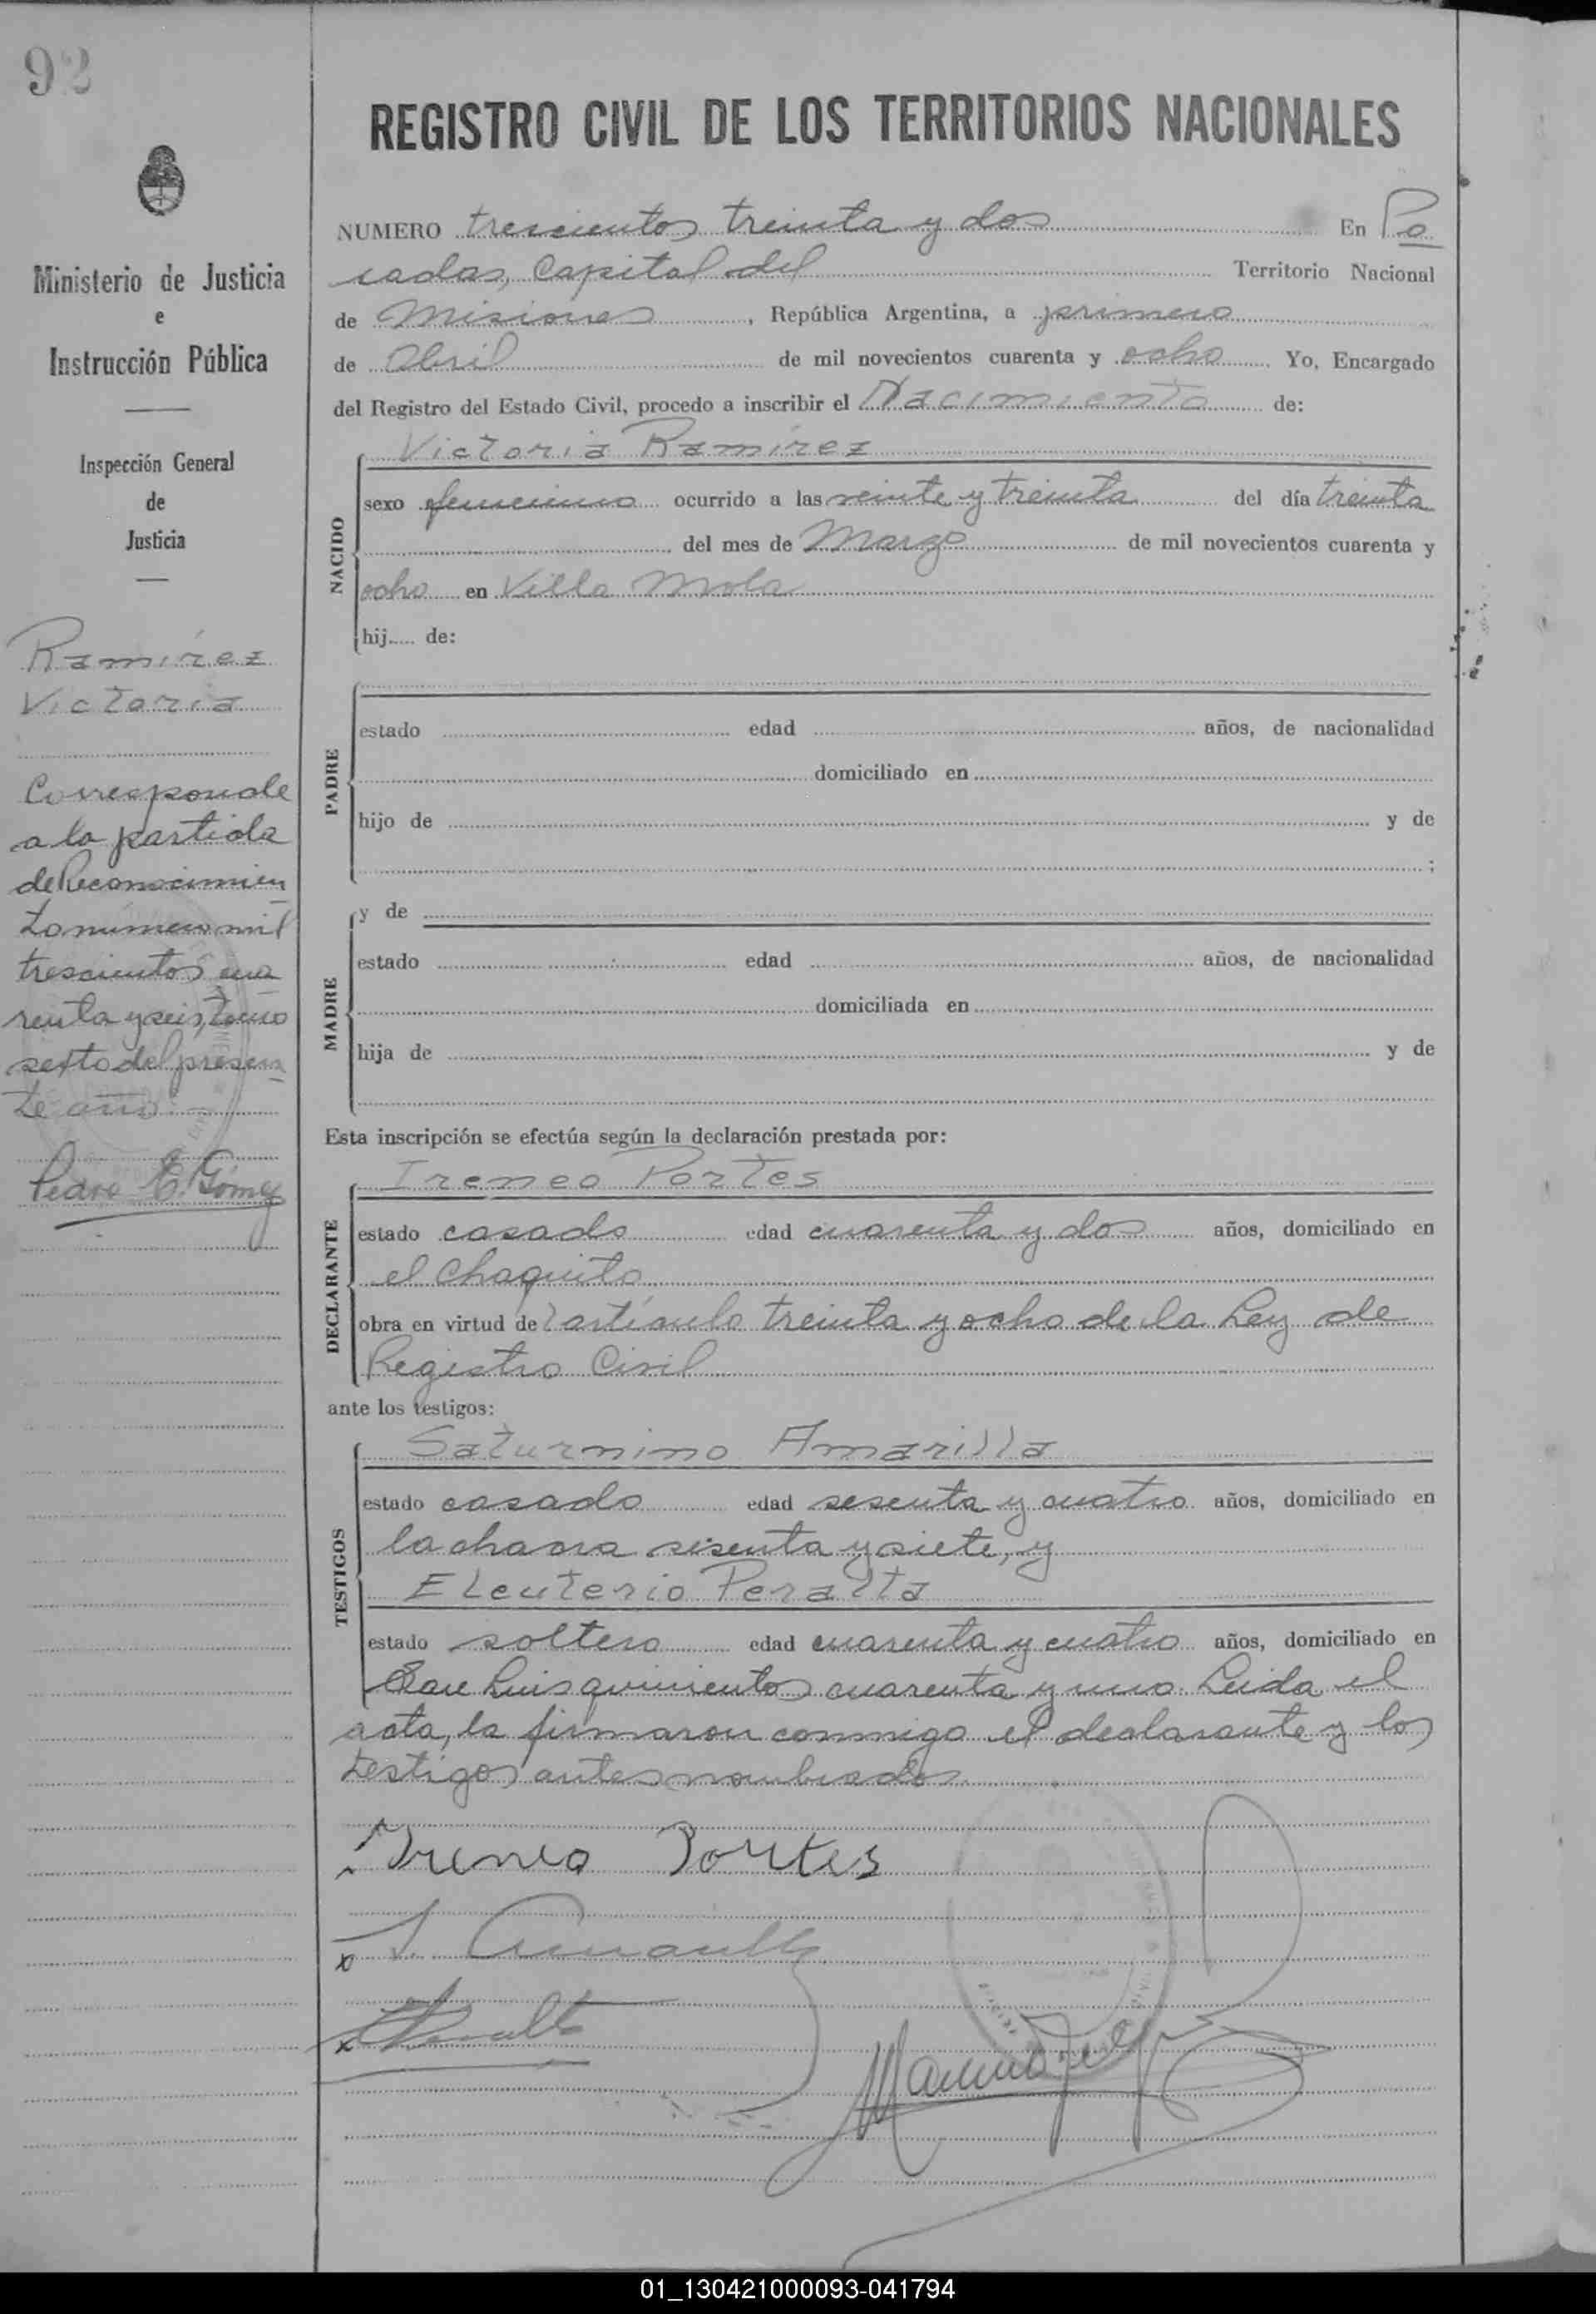 92
REGISTRO CIVIL DE LOS TERRITORIOS NACIONALES
Ministerio de Justicia
e
Instrucción Pública
Inspección General
de
Justicia
Ramírez
Victoria
Corresponde
a la partida
de Reconocimien
to número mil
trescientos cua
renta y seis, tomo
sexto del presen
te año.
Pedro E. Gómez
NUMERO trescientos treinta y dos En Po
sadas, Capital del Territorio Nacional
de Misiones, República Argentina, a primero
de Abril de mil novecientos cuarenta y ocho. Yo, Encargado
del Registro del Estado Civil, procedo a inscribir el Nacimiento de:
Victoria Ramírez
NACIDO
sexo femenino ocurrido a las veinte y treinta del día treinta
del mes de Marzo de mil novecientos cuarenta y
ocho en Villa Mola
hij..... de:
PADRE
estado edad años, de nacionalidad
domiciliado en
hijo de y de
;
y de
MADRE
estado edad años, de nacionalidad
domiciliada en
hija de y de
Esta inscripción se efectúa según la declaración prestada por:
Ireneo Portes
DECLARANTE
estado casado edad cuarenta y dos años, domiciliado en
el Chaquito
obra en virtud del artículo treinta y ocho de la Ley de
Registro Civil
ante los testigos:
Saturnino Amarilla
TESTIGOS
estado casado edad sesenta y cuatro años, domiciliado en
la chacra sesenta y siete, y
Eleuterio Peralta
estado soltero edad cuarenta y cuatro años, domiciliado en
San Luis quinientos cuarenta y uno. Leida el
acta, la firmaron conmigo el declarante y los
testigos antes nombrados.
Ireneo Portes
S. Amarilla
EPeralta
01_130421000093-041794